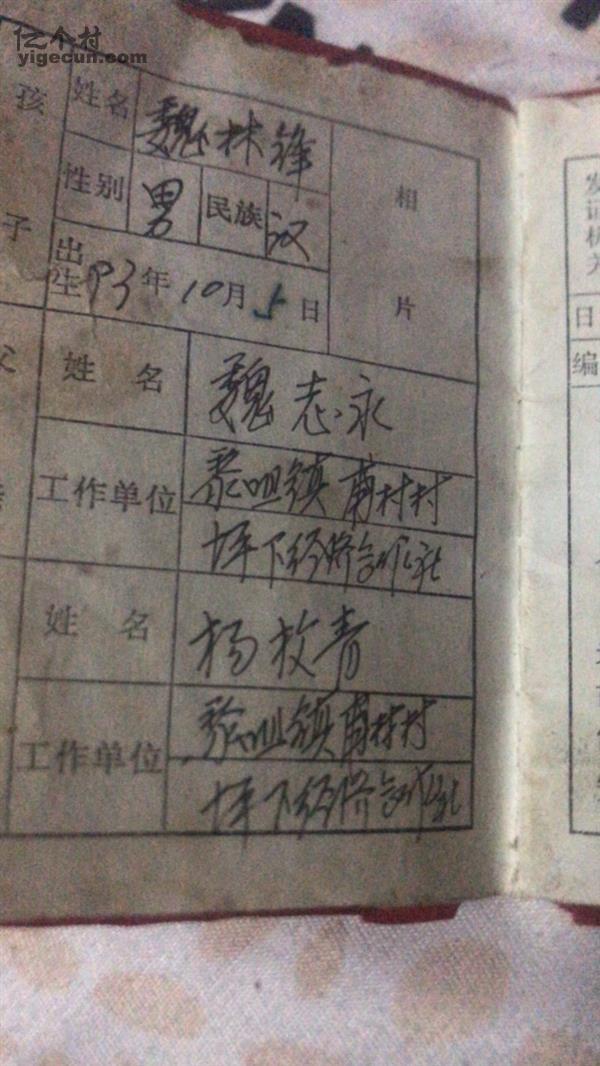 亿个村
yigecun.com
孩子
姓名 魏林锋
相片
性别 男 民族 汉
出生 93年10月5日
父
姓名 魏志永
工作单位 黎咀镇甫村村
坪下经济合作社
姓名 杨枚青
工作单位 黎咀镇甫村村
坪下经济合作社
发证机关
日
编